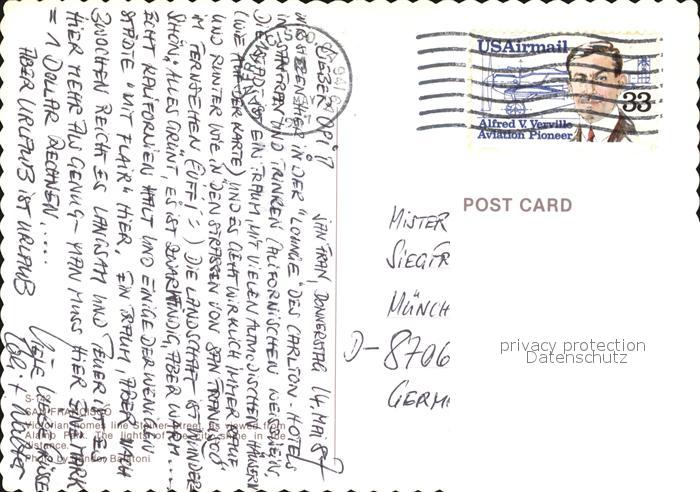 USAirmail
33
Alfred V. Verville
Aviation Pioneer
POST CARD
MISTER
SIEGFR
MÜNCH
D-8706
GERM
privacy protection
Datenschutz
LIEBER OPI!
SAN FRAN, DONNERSTAG 14. MAI 87
HIER IN DER "LOUNGE" DES CARLTON-HOTELS
IN SAN FRAN UND TRINKEN CALIFORNISCHEN WEIN
DIE STADT IST EIN TRAUM MIT VIELEN ALTMODISCHEN HÄUSERN
(WIE AUF DER KARTE) UND ES GEHT WIRKLICH IMMER RAUF
UND RUNTER WIE IN DEN STRASSEN VON SAN FRANZISCO
IM FERNSEHEN (UFF!) DIE LANDSCHAFT IST WUNDER
SCHÖN, ALLES GRÜNT, ES IST ZWAR WINDIG, ABER WARM...
ECHT KALIFORNIEN HALT UND EINIGE DER WENIGEN
STÄDTE "MIT FLAIR" HIER, EIN TRAUM, ABER 1 WOCH
REICHT ES LANGSAM UND TEUER IST ES
HIER MEHR ALS GENUG - MAN MUSS HIER EINE MARK
= 1 DOLLAR RECHNEN....
ABER URLAUB IST URLAUB
VIELE LIEBE GRÜSSE
S-1
SAN FRANCISCO
Victorian homes line Steiner Street, as viewed from
Alamo Park. The lights of the city shine in the
distance.
Photo by Sandor Balatoni